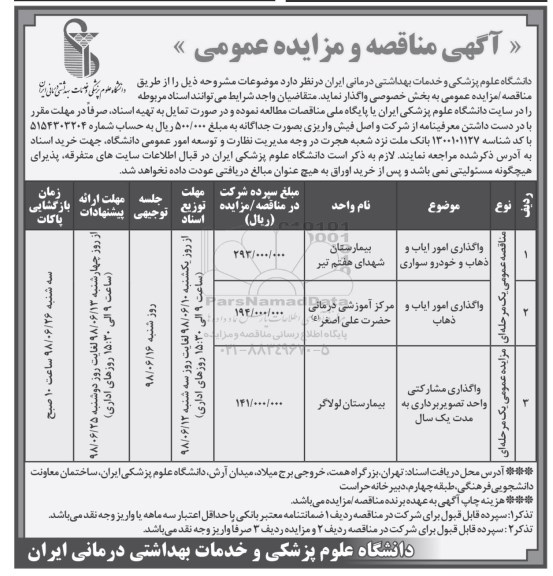 « آگهی مناقصه و مزایده عمومی »
دانشگاه علوم پزشکی و خدمات بهداشتی درمانی ایران
دانشگاه علوم پزشکی و خدمات بهداشتی درمانی ایران در نظر دارد موضوعات مشروحه ذیل را از طریق
مناقصه/مزایده عمومی به بخش خصوصی واگذار نماید. متقاضیان واجد شرایط می توانند اسناد مربوطه
را در سایت دانشگاه علوم پزشکی ایران یا پایگاه ملی مناقصات مطالعه نموده و در صورت تمایل به تهیه اسناد، صرفاً در مهلت مقرر
با در دست داشتن معرفینامه از شرکت و اصل فیش واریزی بصورت جداگانه به مبلغ ۵۰۰/۰۰۰ ریال به حساب شماره ۵۱۵۴۳۰۳۲۰۴
با کد شناسه ۱۳۰۰۱۰۱۱۲۷ بانک ملت نزد شعبه هجرت در وجه مدیریت نظارت و توسعه امور عمومی دانشگاه، جهت خرید اسناد
به آدرس ذکرشده مراجعه نمایند. لازم به ذکر است دانشگاه علوم پزشکی ایران در قبال اطلاعات سایت های متفرقه، پذیرای
هیچگونه مسئولیتی نمی باشد و پس از خرید اوراق به هیچ عنوان مبالغ دریافتی عودت داده نخواهد شد.
ردیف نوع موضوع نام واحد مبلغ سپرده شرکت در مناقصه/مزایده (ریال) مهلت توزیع اسناد جلسه توجیهی مهلت ارائه پیشنهادات زمان بازگشایی پاکات
۱ واگذاری امور ایاب و ذهاب و خودرو سواری بیمارستان شهدای هفتم تیر ۲۹۳/۰۰۰/۰۰۰
مناقصه عمومی یک مرحله‌ای
۲ واگذاری امور ایاب و ذهاب مرکز آموزشی درمانی حضرت علی اصغر(ع) ۱۹۴/۰۰۰/۰۰۰
۳ مزایده عمومی یک مرحله‌ای واگذاری مشارکتی واحد تصویربرداری به مدت یک سال بیمارستان لولاگر ۱۴۱/۰۰۰/۰۰۰
از روز یکشنبه ۹۸/۰۶/۱۰ لغایت روز سه شنبه ۹۸/۰۶/۱۲
(ساعت ۹ الی ۱۵:۳۰ روزهای اداری)
روز شنبه ۹۸/۰۶/۱۶
از روز چهارشنبه ۹۸/۰۶/۱۳ لغایت روز دوشنبه ۹۸/۰۶/۲۵
(ساعت ۹ الی ۱۵:۳۰ روزهای اداری)
سه شنبه ۹۸/۰۶/۲۶ ساعت ۱۰ صبح
ParsNamadData
پایگاه اطلاع رسانی مناقصه و مزایده
۰۲۱-۸۸۳۴۹۶۷۰-۵
※※※ آدرس محل دریافت اسناد: تهران، بزرگراه همت، خروجی برج میلاد، میدان آرش، دانشگاه علوم پزشکی ایران، ساختمان معاونت
دانشجویی فرهنگی، طبقه چهارم، دبیرخانه حراست
※※※ هزینه چاپ آگهی به عهده برنده مناقصه/مزایده می‌باشد.
تذکر۱: سپرده قابل قبول برای شرکت در مناقصه ردیف ۱ ضمانتنامه معتبر بانکی با حداقل اعتبار سه ماهه یا واریز وجه نقد می‌باشد.
تذکر۲: سپرده قابل قبول برای شرکت در مناقصه ردیف ۲ و مزایده ردیف ۳ صرفا واریز وجه نقد می‌باشد.
دانشگاه علوم پزشکی و خدمات بهداشتی درمانی ایران